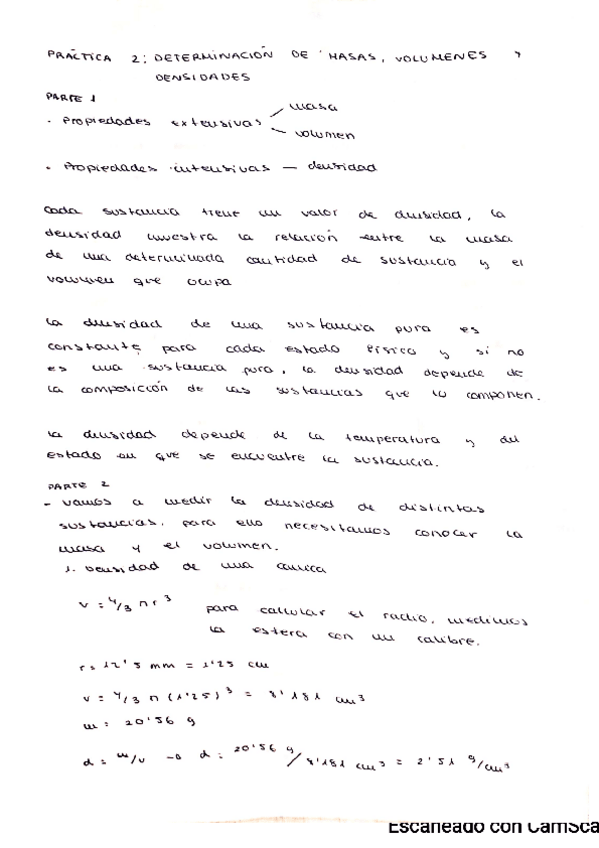 PRÁCTICA 2: DETERMINACIÓN DE MASAS, VOLUMENES Y
DENSIDADES
PARTE 1
· Propiedades extensivas masa
volumen
· Propiedades intensivas — densidad
Cada sustancia tiene un valor de densidad, la
densidad muestra la relación entre la masa
de una determinada cantidad de sustancia y el
volumen que ocupa
La densidad de una sustancia pura es
constante para cada estado físico y si no
es una sustancia pura, la densidad depende de
la composición de las sustancias que lo componen.
La densidad depende de la temperatura y del
estado en que se encuentre la sustancia.
PARTE 2
- Vamos a medir la densidad de distintas
sustancias, para ello necesitamos conocer la
masa y el volumen.
1. Densidad de una canica
v = 4/3 π r³ para calcular el radio, medimos
la esfera con un calibre.
r = 12'5 mm = 1'25 cm
v = 4/3 π (1'25)³ = 8'181 cm³
m = 20'56 g
d = m/v → d = 20'56 g / 8'181 cm³ = 2'51 g/cm³
Escaneado con CamSca